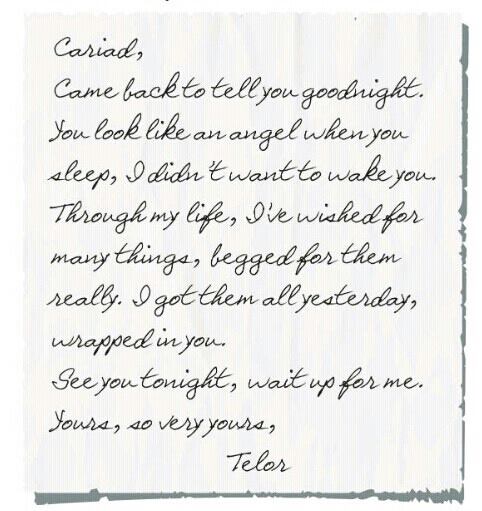 Cariad,
Came back to tell you goodnight.
You look like an angel when you
sleep, I didn't want to wake you.
Through my life, I've wished for
many things, begged for them
really. I got them all yesterday,
wrapped in you.
See you tonight, wait up for me.
Yours, so very yours,
Telor